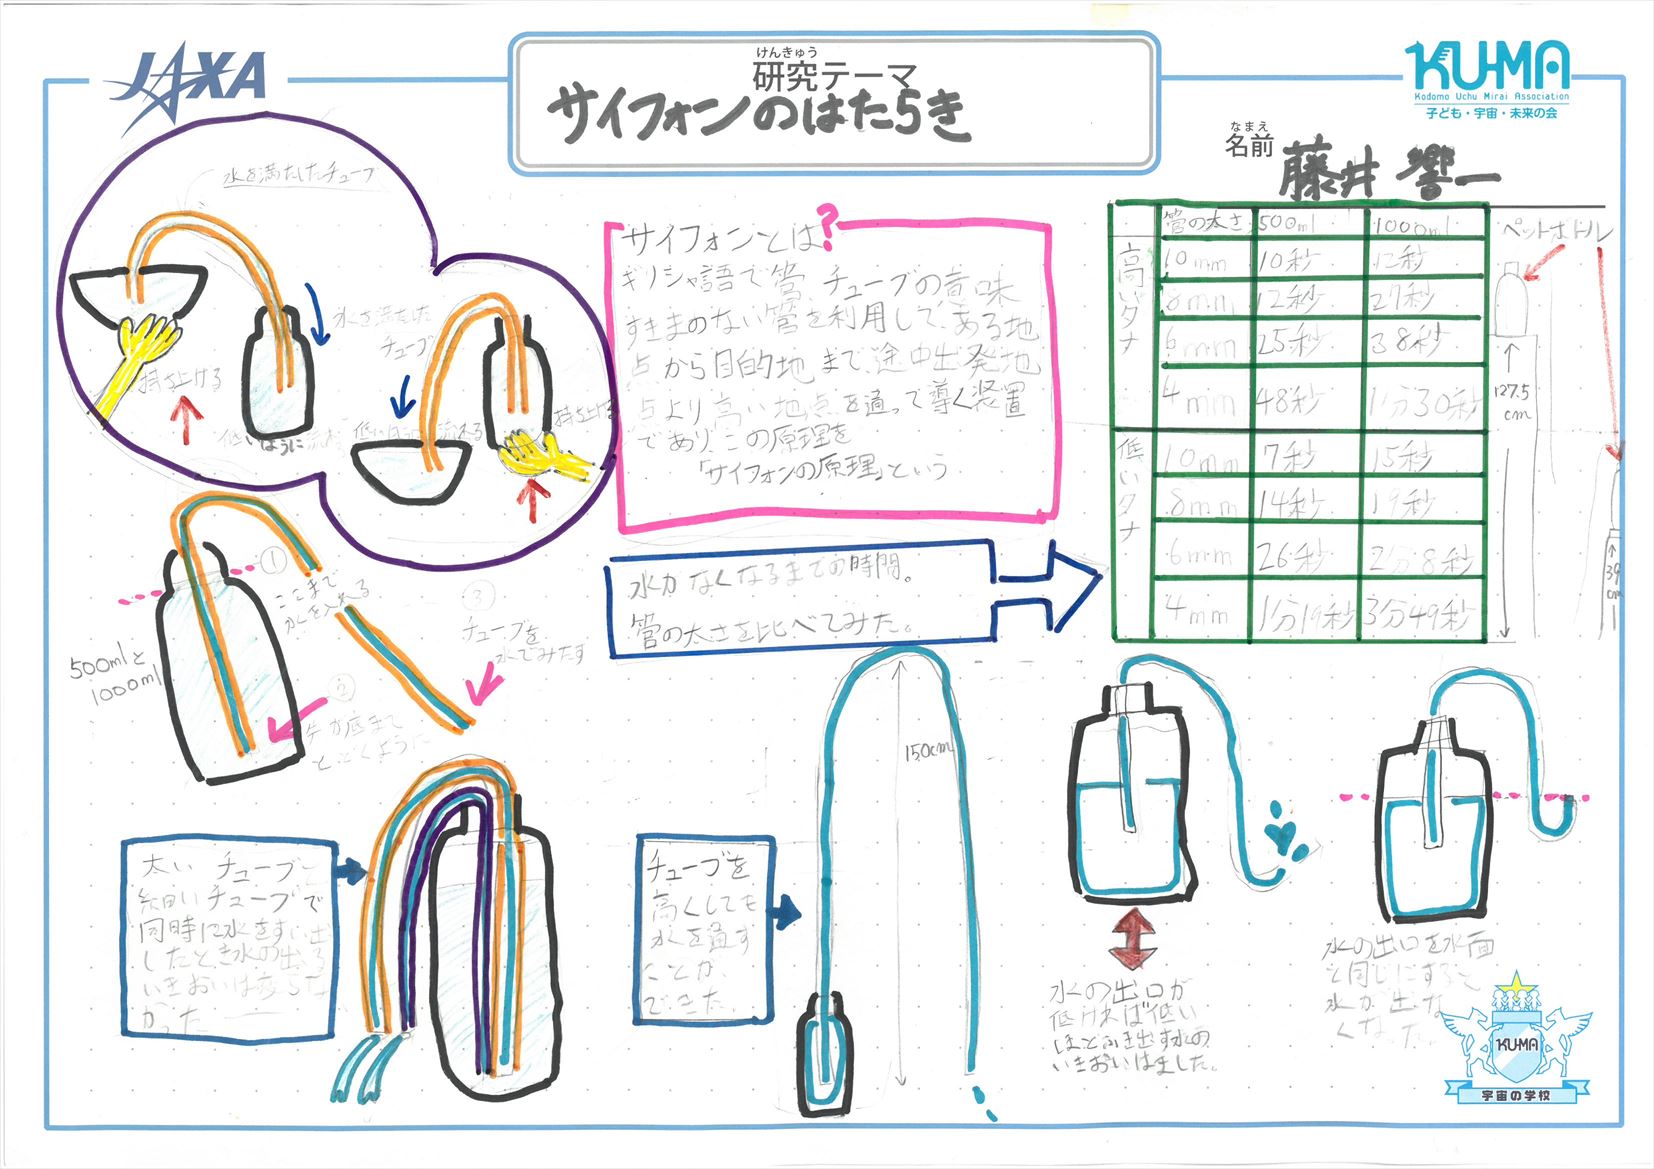 JAXA
けんきゅう
研究テーマ
サイフォンのはたらき
KU-MA
Kodomo Uchu Mirai Association
子ども・宇宙・未来の会
なまえ
名前
藤井 響一
水を満たしたチューブ
水を満たした
チューブ
持ち上げる
低いほうに流れ
低いほうに流れる
持ち上げる
サイフォンとは?
ギリシャ語で管、チューブの意味
すきまのない管を利用して、ある地
点から目的地まで、途中出発地
点より高い地点を通って導く装置
であり、この原理を
「サイフォンの原理」という
水がなくなるまでの時間。
管の太さを比べてみた。
管の太さ 500ml 1000ml
高いタナ
10mm 10秒 12秒
8mm 12秒 27秒
6mm 25秒 38秒
4mm 48秒 1分30秒
低いタナ
10mm 7秒 15秒
8mm 14秒 19秒
6mm 26秒 2分8秒
4mm 1分19秒 3分49秒
ペットボトル
127.5
cm
39
cm
①
ここまで
水を入れる
③
チューブを
水でみたす
500mlと
1000ml
②
管が底まで
とどくように
太いチューブと
細いチューブで
同時に水をすい出
したとき水の出る
いきおいは変らな
かった
チューブを
高くしても
水を通す
ことが
できた
150cm
水の出口が
低ければ低い
ほどふき出す水の
いきおいはました。
水の出口を水面
と同じにすると
水が出な
くなった。
KU-MA
宇宙の学校